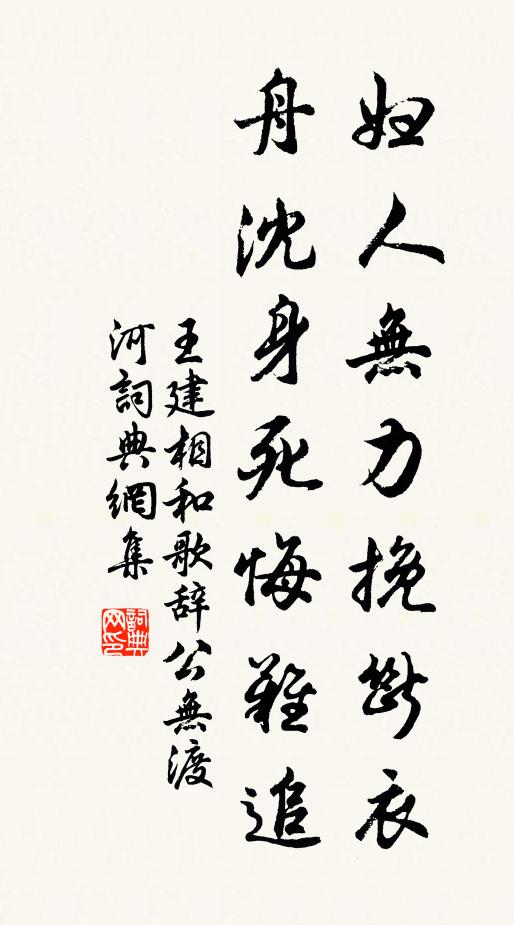 妇人無力挽斷衣
舟沈身死悔難追
王建相和歌辞公無渡
河詞典網集
詞典網印